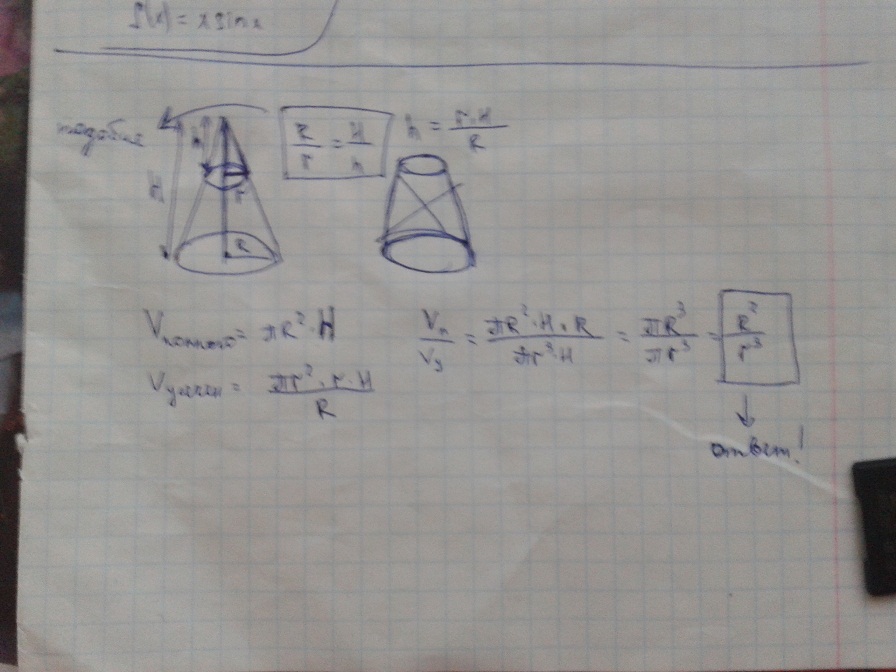 f(x) = x sin x
подобие
R/r = H/h
h = r·H/R
h
H
r
R
Vполного = πR²·H
Vусечен = πr²·r·H/R
Vп/Vу = πR²·H·R/πr³·H = πR³/πr³ = R³/r³
ответ!